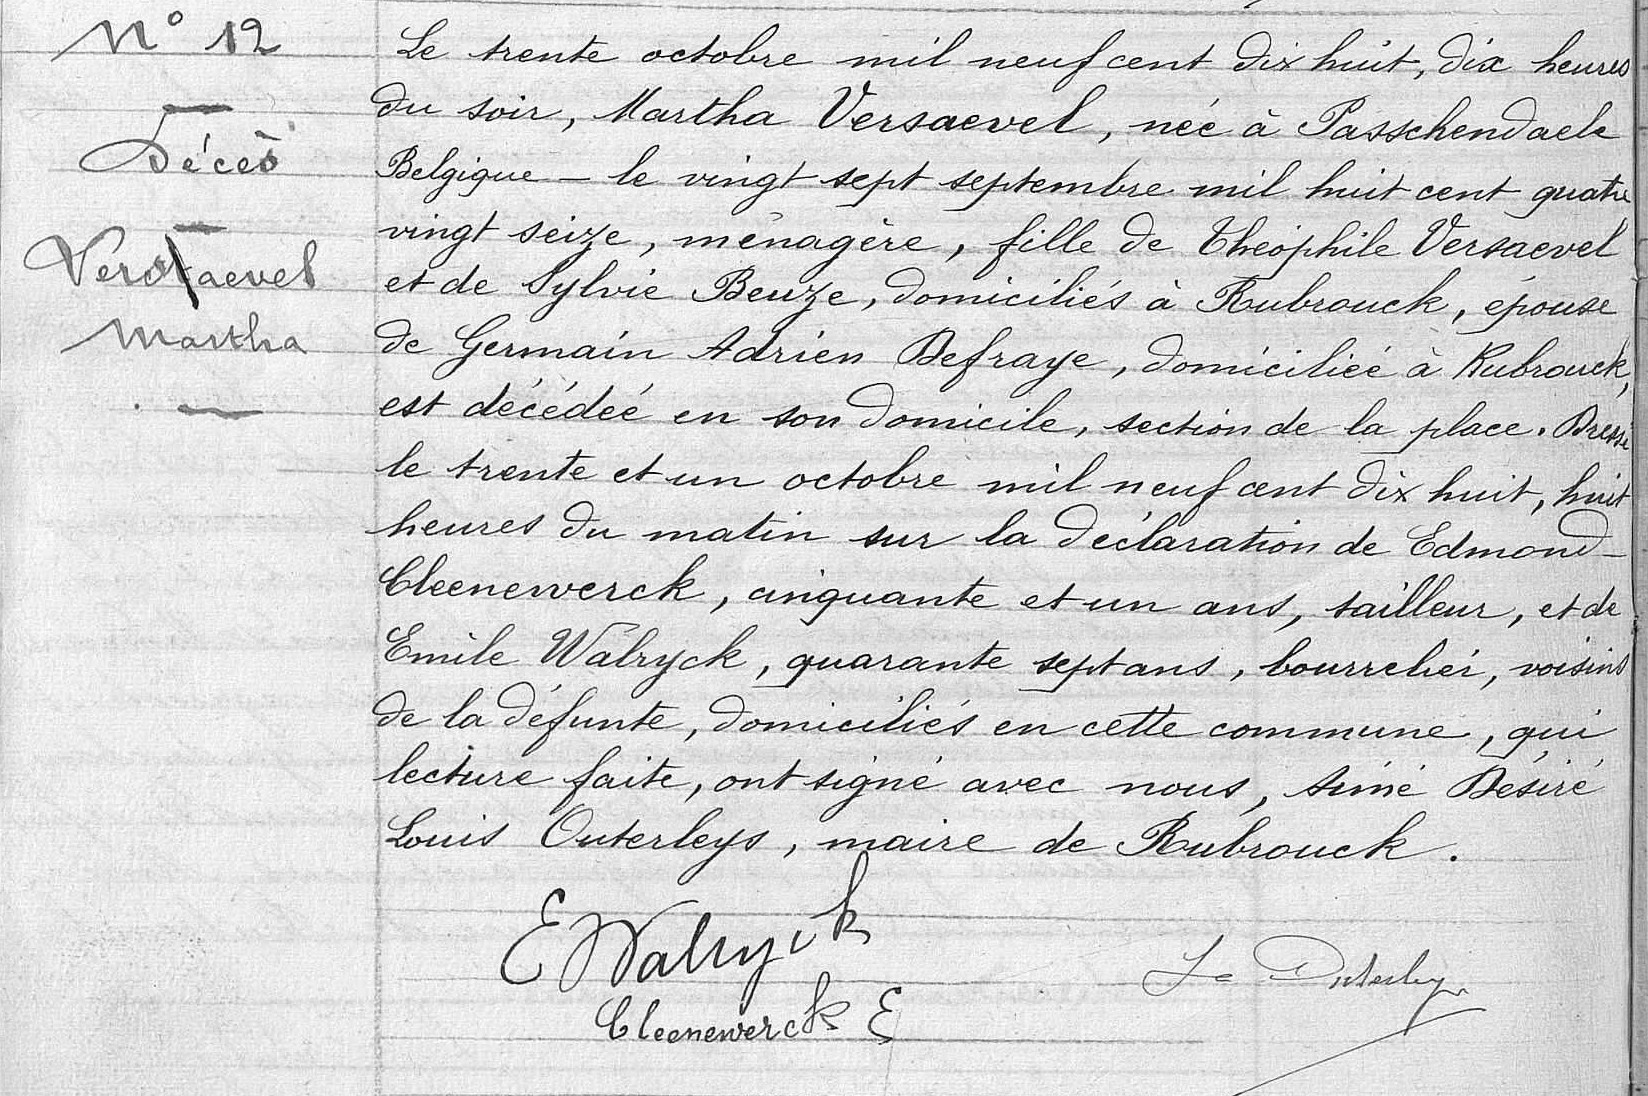 N° 12
Décès
Versaevel
Martha
Le trente octobre mil neuf cent dix huit, dix heures
du soir, Martha Versaevel, née à Passchendaele
Belgique - le vingt sept septembre mil huit cent quatre
vingt seize, ménagère, fille de Théophile Versaevel
et de Sylvie Beuze, domiciliés à Rubrouck, épouse
de Germain Adrien Defraye, domiciliée à Rubrouck,
est décédée en son domicile, section de la place. Dressé
le trente et un octobre mil neuf cent dix huit, huit
heures du matin sur la déclaration de Edmond
Cleenewerck, cinquante et un ans, tailleur, et de
Emile Walryck, quarante sept ans, bourrelier, voisins
de la défunte, domiciliés en cette commune, qui
lecture faite, ont signé avec nous, Aimé Désiré
Louis Outerleys, maire de Rubrouck.
E Walryck
Cleenewerck E